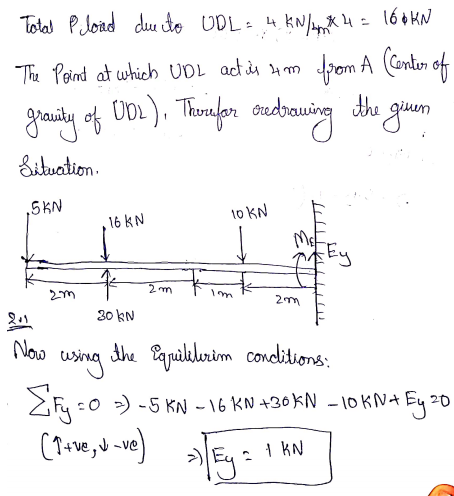 Total P load due to UDL = 4 KN/m * 4 = 16 KN
The Point at which UDL act is 4m from A (Center of
gravity of UDL), Therefor redrawing the given
Situation.
5KN
16 KN
10 KN
ME
Ey
2m
2m
1m
2m
30 KN
2.1
Now using the Equilibrium conditions:
∑Fy = 0 ⇒ -5 KN - 16 KN + 30 KN - 10 KN + Ey = 0
(↑+ve, ↓-ve)
⇒ Ey = 1 KN